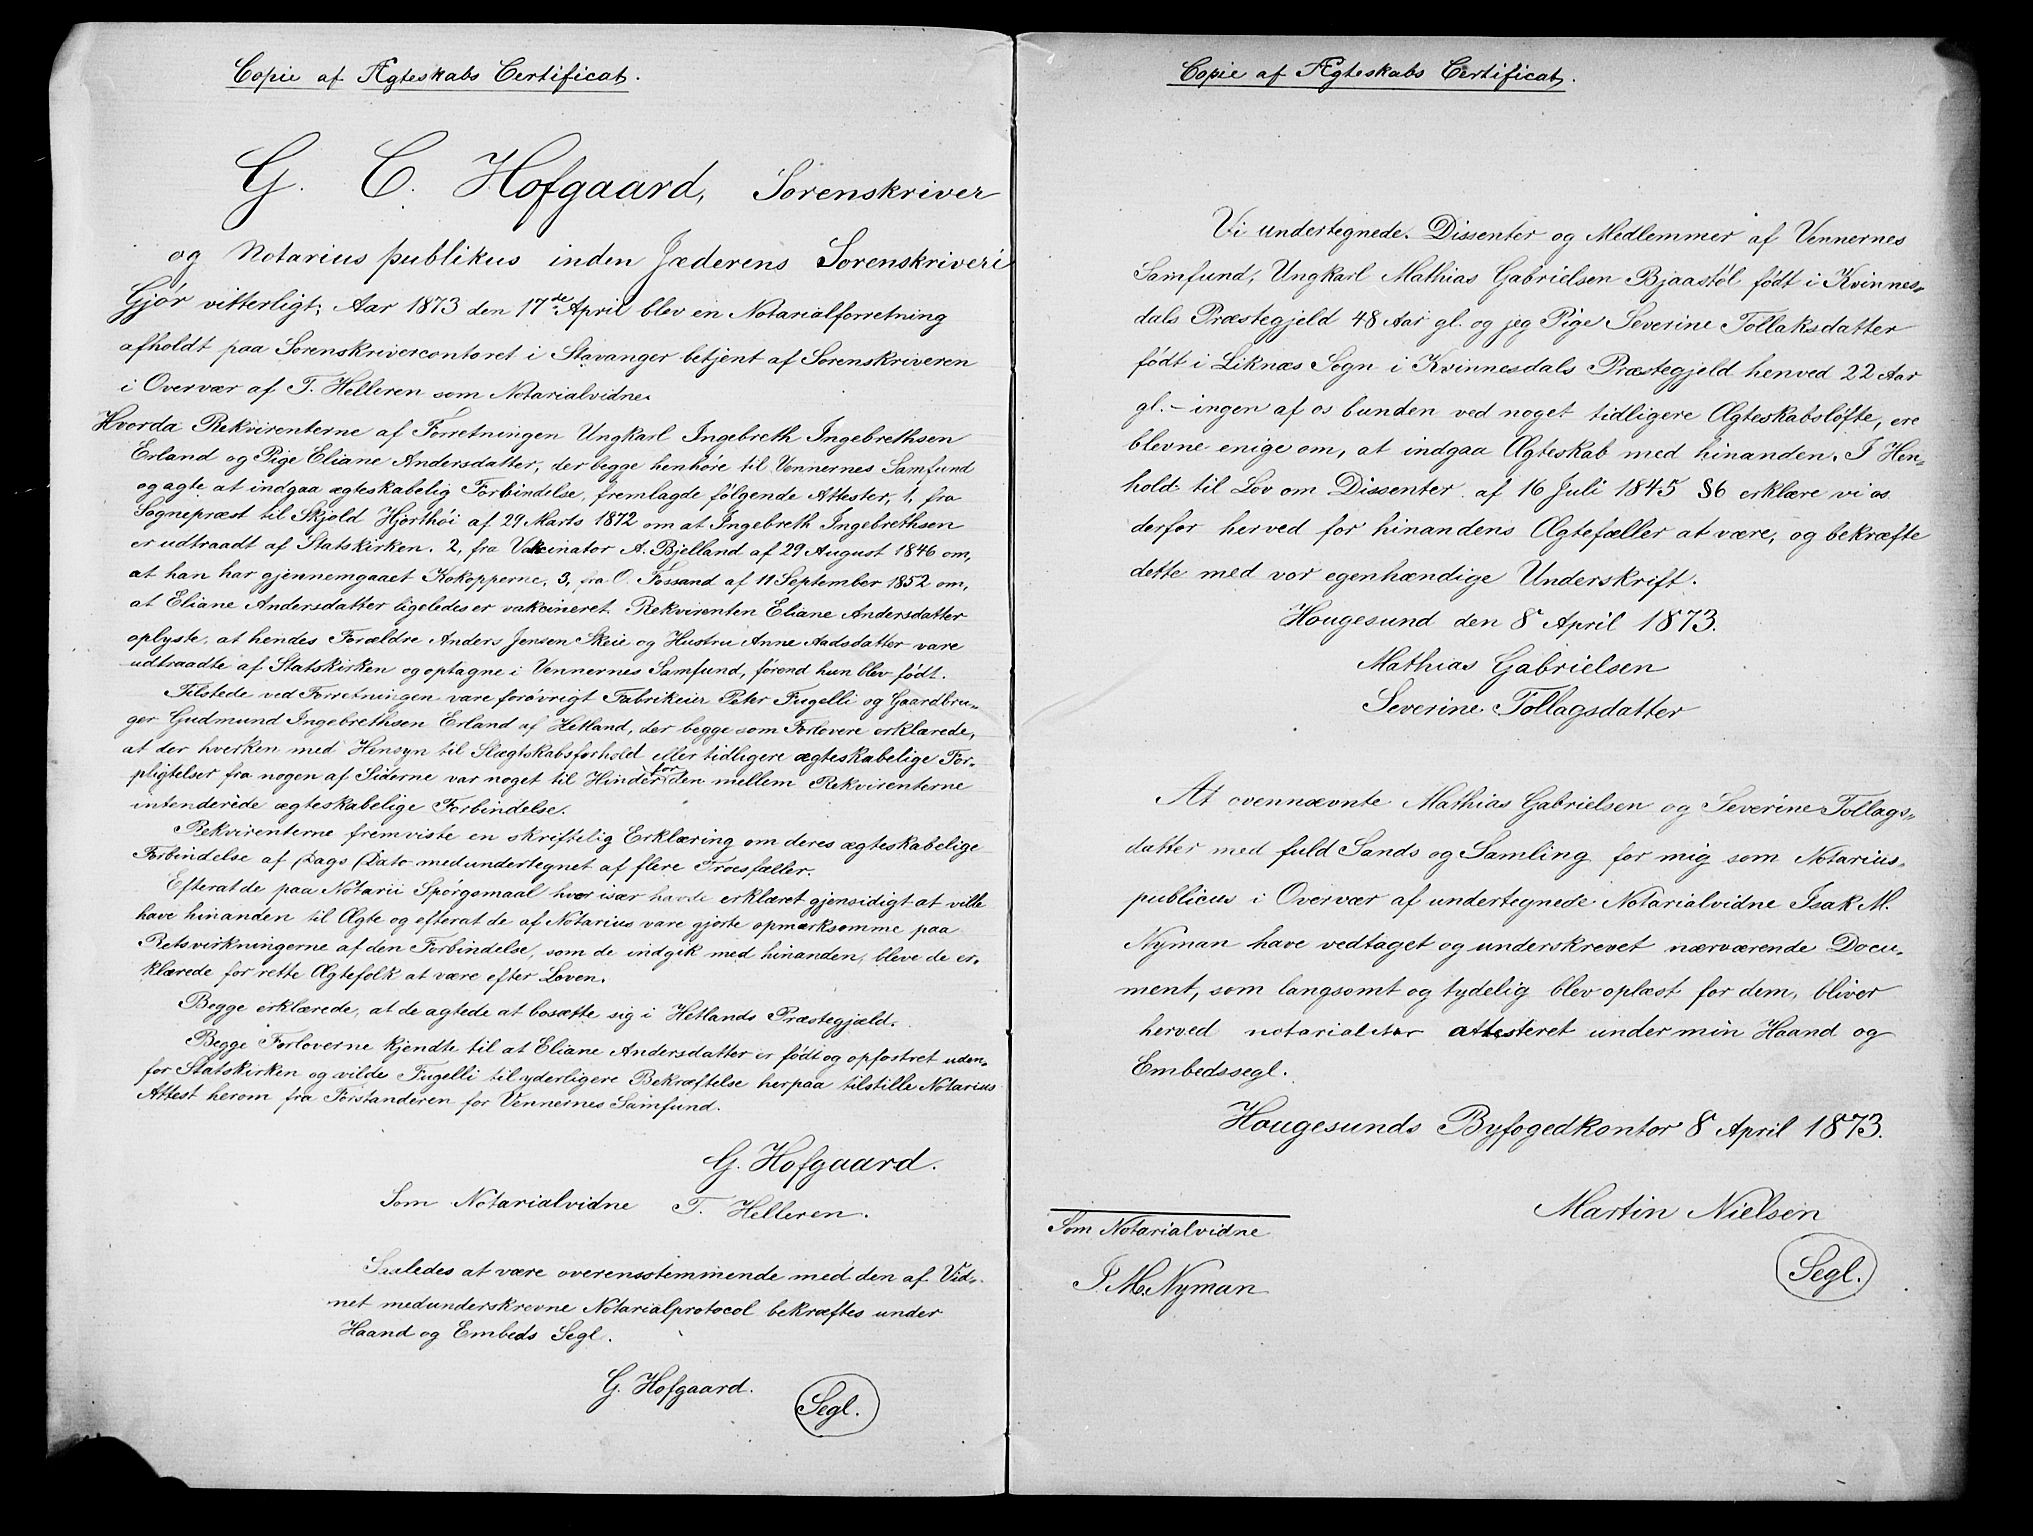 Copie af Ægteskabs Certificat.
G. C. Hofgaard, Sorenskriver
og Notarius publikus inden Jæderens Sorenskriveri
Gjør vitterligt; Aar 1873 den 17de April blev en Notarialforretning
afholdt paa Sorenskrivercontoret i Stavanger betjent af Sorenskriveren
i Overvær af T. Helleren som Notarialvidne.
Hvorda Rekvirenterne af Forretningen Ungkarl Ingebreth Ingebrethsen
Erland og Pige Eliane Andersdatter, der begge henhøre til Vennernes Samfund
og agte at indgaa ægteskabelig Forbindelse, fremlagde følgende Attester, 1, fra
Sognepræst til Skjold Hjorthøi af 29 Marts 1872 om at Ingebreth Ingebrethsen
er udtraadt af Statskirken. 2, fra Vakcinator A. Bjelland af 29 August 1846 om,
at han har gjennemgaaet Kokopperne, 3, fra O. Fossand af 11 September 1852 om,
at Eliane Andersdatter ligeledes er vakcineret. Rekvirenten Eliane Andersdatter
oplyste, at hendes Forældre Anders Jensen Skeie og Hustru Anne Aadsdatter vare
udtraadte af Statskirken og optagne i Vennernes Samfund, førend hun blev født.
Tilstede ved Forretningen vare forøvrigt Fabrikeier Peter Fugelli og Gaardbru-
ger Gudmund Ingebrethsen Erland af Hetland, der begge som Forlovere erklærede,
at der hverken med Hensyn til Slægtskabsforhold eller tidligere ægteskabelige For-
pligtelser fra nogen af Siderne var noget til Hinder for den mellem Rekvirenterne
intenderede ægteskabelige Forbindelse.
Rekvirenterne fremviste en skriftelig Erklæring om deres ægteskabelige
Forbindelse af Dags Dato medundertegnet af flere Troesfæller.
Efterat de paa Notarii Spørgsmaal hver især havde erklæret gjensidigt at ville
have hinanden til Ægte og efterat de af Notarius vare gjorte opmærksomme paa
Retsvirkningerne af den Forbindelse, som de indgik med hinanden, bleve de er-
klærede for rette Ægtefolk at være efter Loven.
Begge erklærede, at de agtede at bosætte sig i Hetlands Præstegjæld.
Begge Forloverne kjendte til at Eliane Andersdatter er født og opfostret uden-
for Statskirken og vilde Fugelli til yderligere Bekræftelse herpaa tilstille Notarius
Attest herom fra Forstanderen for Vennernes Samfund.
G. Hofgaard.
Som Notarialvidne T. Helleren.
Saaledes at være overensstemmende med den af Vid-
net medunderskrevne Notarialprotocol bekræftes under
Haand og Embeds Segl.
G. Hofgaard.
Segl.
Copie af Ægteskabs Certificat.
Vi undertegnede. Dissenter og Medlemmer af Vennernes
Samfund, Ungkarl Mathias Gabrielsen Bjaastøl født i Kvinnes-
dals Præstegjeld 48 Aar gl. og jeg Pige Severine Tollaksdatter
født i Liknæs Sogn i Kvinnesdals Præstegjeld henved 22 Aar
gl. - ingen af os bunden ved noget tidligere Ægteskabsløfte, ere
blevne enige om, at indgaa Ægteskab med hinanden. I Hen-
hold til Lov om Dissenter af 16 Juli 1845 §6 erklære vi os
derfor herved for hinandens Ægtefæller at være, og bekræfte
dette med vor egenhændige Underskrift.
Hougesund den 8 April 1873.
Mathias Gabrielsen
Severine Tollagsdatter
At ovennævnte Mathias Gabrielsen og Severine Tollags-
datter med fuld Sands og Samling for mig som Notarius
publicus i Overvær af undertegnede Notarialvidne Isak M.
Nyman have vedtaget og underskrevet nærværende Docu-
ment, som langsomt og tydelig blev oplæst for dem, bliver
herved notarialiter attesteret under min Haand og
Embedssegl.
Hougesunds Byfogedkontor 8 April 1873.
Martin Nielsen
Segl.
Som Notarialvidne
I. M. Nyman